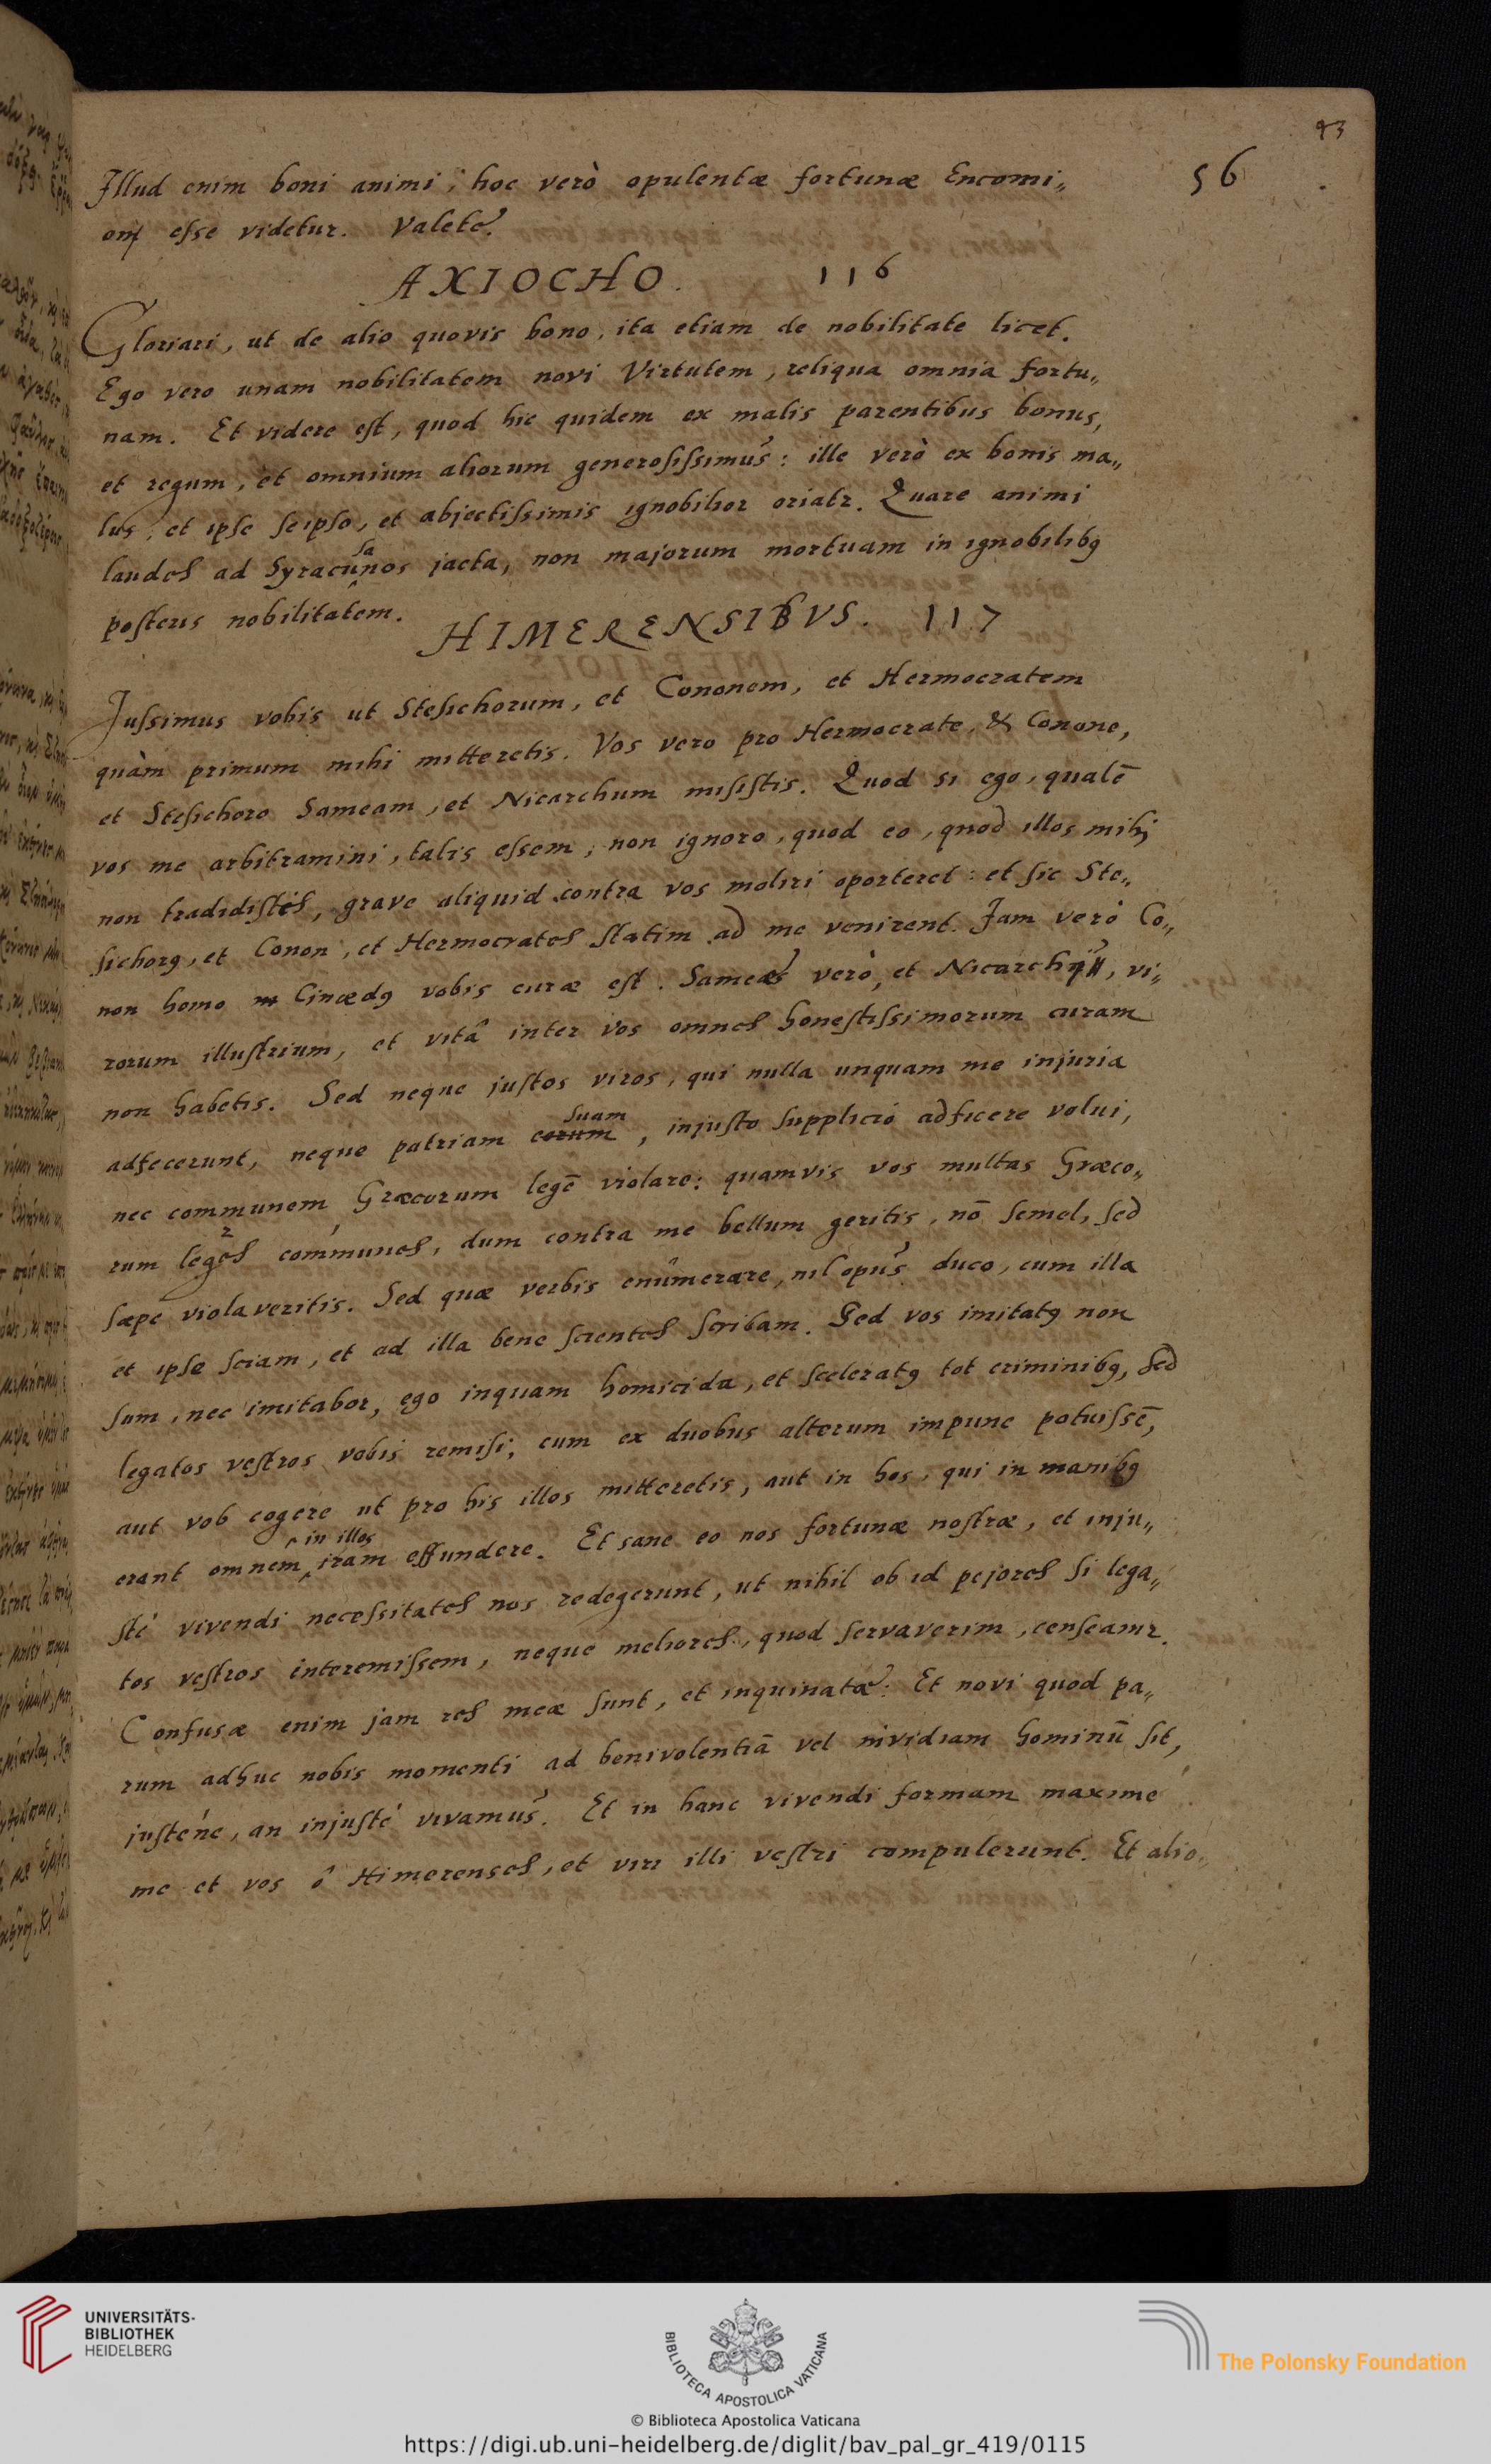 93
56
Illud enim boni animi, hoc verò opulentæ fortunæ Encomi„
om esse videtur. Valete.
AXIOCHO. 116
Gloriari, ut de alio quovis bono, ita etiam de nobilitate licet.
Ego vero unam nobilitatem novi Virtutem, reliqua omnia fortu„
nam. Et videre est, quod hic quidem ex malis parentibus bonus,
et regum, et omnium aliorum generosissimus: ille verò ex bonis ma„
lus, et ipse seipso, et abjectissimis ignobilior oriatr. Quare animi
sa
laudes ad Syracunos jacta, non majorum mortuam in ignobilibꝫ
posteris nobilitatem.
HIMERENSIBVS. 117
Jussimus vobis ut Stesichorum, et Cononem, et Hermocratem
quàm primum mihi mitteretis. Vos vero pro Hermocrate, & Conone,
et Stesichoro Sameam, et Nicarchum misistis. Quod si ego, qualē
vos me arbitramini, talis essem, non ignoro, quod eo, quod illos mihj
non tradidistis, grave aliquid contra vos moliri oporteret: et sic Ste„
sichorꝰ, et Conon, et Hermocrates statim ad me venirent. Jam verò Co„
non homo Cinædꝰ vobis curæ est. Sameæ verò, et Nicarchi, vi„
rorum illustrium, et vitâ inter vos omnes honestissimorum curam
non habetis. Sed neque justos viros, qui nulla unquam me injuria
suam
adfecerunt, neque patriam eorum, injusto supplicio adficere volui,
nec communem Græcorum legē violare: quamvis vos multas Græco„
2
rum leges communes, dum contra me bellum geritis, nō semel, sed
sæpe violaveritis. Sed quæ verbis enumerare, nil opus duco, cum illa
et ipse sciam, et ad illa bene scientes scribam. Sed vos imitatꝰ non
sum, nec imitabor, ego inquam homicida, et sceleratꝰ tot criminibꝫ, sed
legatos vestros vobis remisi, cum ex duobus alterum impune potuissē,
aut vob cogere ut pro his illos mitteretis, aut in hos, qui in manibꝫ
in illos
erant omnem iram effundere. Et sane eo nos fortunæ nostræ, et inju„
sté vivendi necessitates nos redegerunt, ut nihil ob id pejores si lega„
tos vestros interemissem, neque meliores, quod servaverim, censeamr.
Confusæ enim jam res meæ sunt, et inquinatæ: Et novi quod pa„
rum adhuc nobis momenti ad benivolentiā vel invidiam hominū sit,
justéne, an injusté vivamus. Et in hanc vivendi formam maximé
me et vos ô Himerenses, et viri illi vestri compulerunt. Et alio„
UNIVERSITÄTS-
BIBLIOTHEK
HEIDELBERG
BIBLIOTECA APOSTOLICA VATICANA
The Polonsky Foundation
© Biblioteca Apostolica Vaticana
https://digi.ub.uni-heidelberg.de/diglit/bav_pal_gr_419/0115